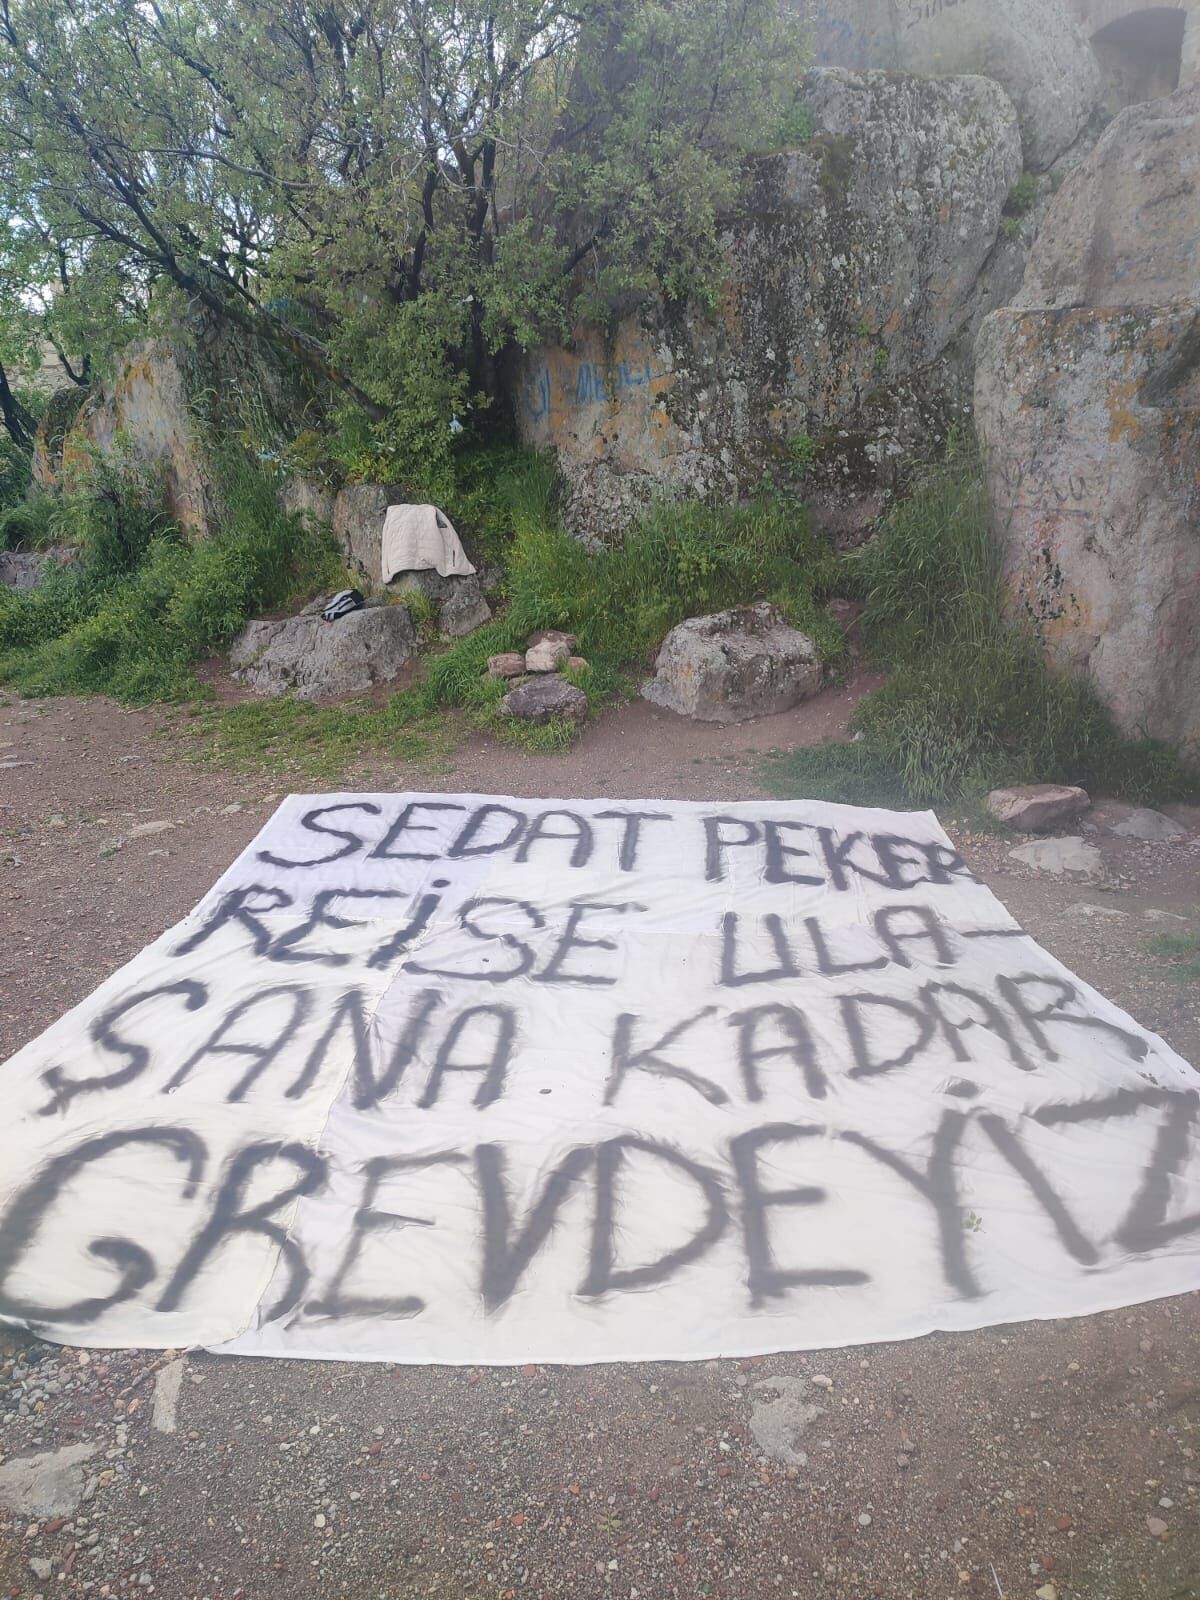 SEDAT PEKER
REİSE ULA-
ŞANA KADAR
GREVDEYİZ